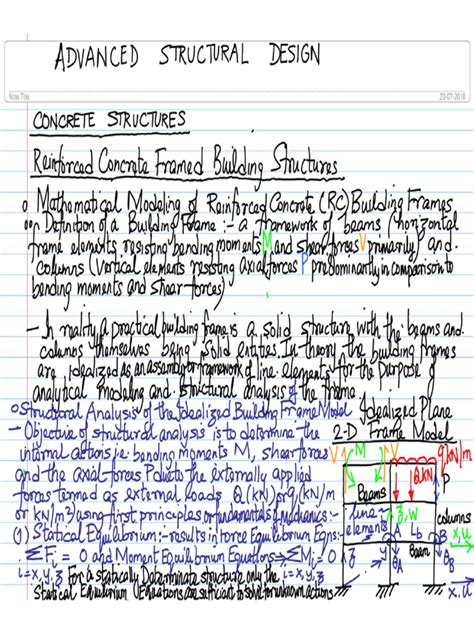 ADVANCED STRUCTURAL DESIGN
Note Title
23-07-2018
CONCRETE STRUCTURES
Reinforced Concrete Framed Building Structures
Mathematical Modeling of Reinforced Concrete (RC) Building Frames
Definition of a Building Frame :- a framework of beams (horizontal
frame elements resisting bending moments M and shear forces V primarily) and
columns (Vertical elements resisting axial forces P predominantly in comparison to
bending moments and shear-forces)
- In reality a practical building frame is a solid structure with the beams and
columns themselves being solid entities. In theory the building frames
are idealized as an assembly or framework of line elements for the purpose of
analytical modeling and structural analysis of the frame
Structural Analysis of the Idealized Building Frame Model
- Objective of structural analysis is to determine the
internal actions i.e. bending moments M, shear forces
and the axial forces P due to the externally applied
forces termed as external loads Q (kN) or q (kN/m
or kN/m²) using first principles or fundamentals of mechanics :-
(1) Statical Equilibrium :- results in Force Equilibrium Eqns :-
ΣFi = 0 and Moment Equilibrium Equations ⇒ ΣMi = 0
i=x, y, z For a statically Determinate structure only the i=x, y, z
Statical Equilibrium Equations are sufficient to solve for unknown actions
Idealized Plane
2-D Frame Model
V M V q kN/m
Q kN
P
Beams
line
elements
z, W
columns
A Lb B
x, u
y Beam
z θA θB
x, u